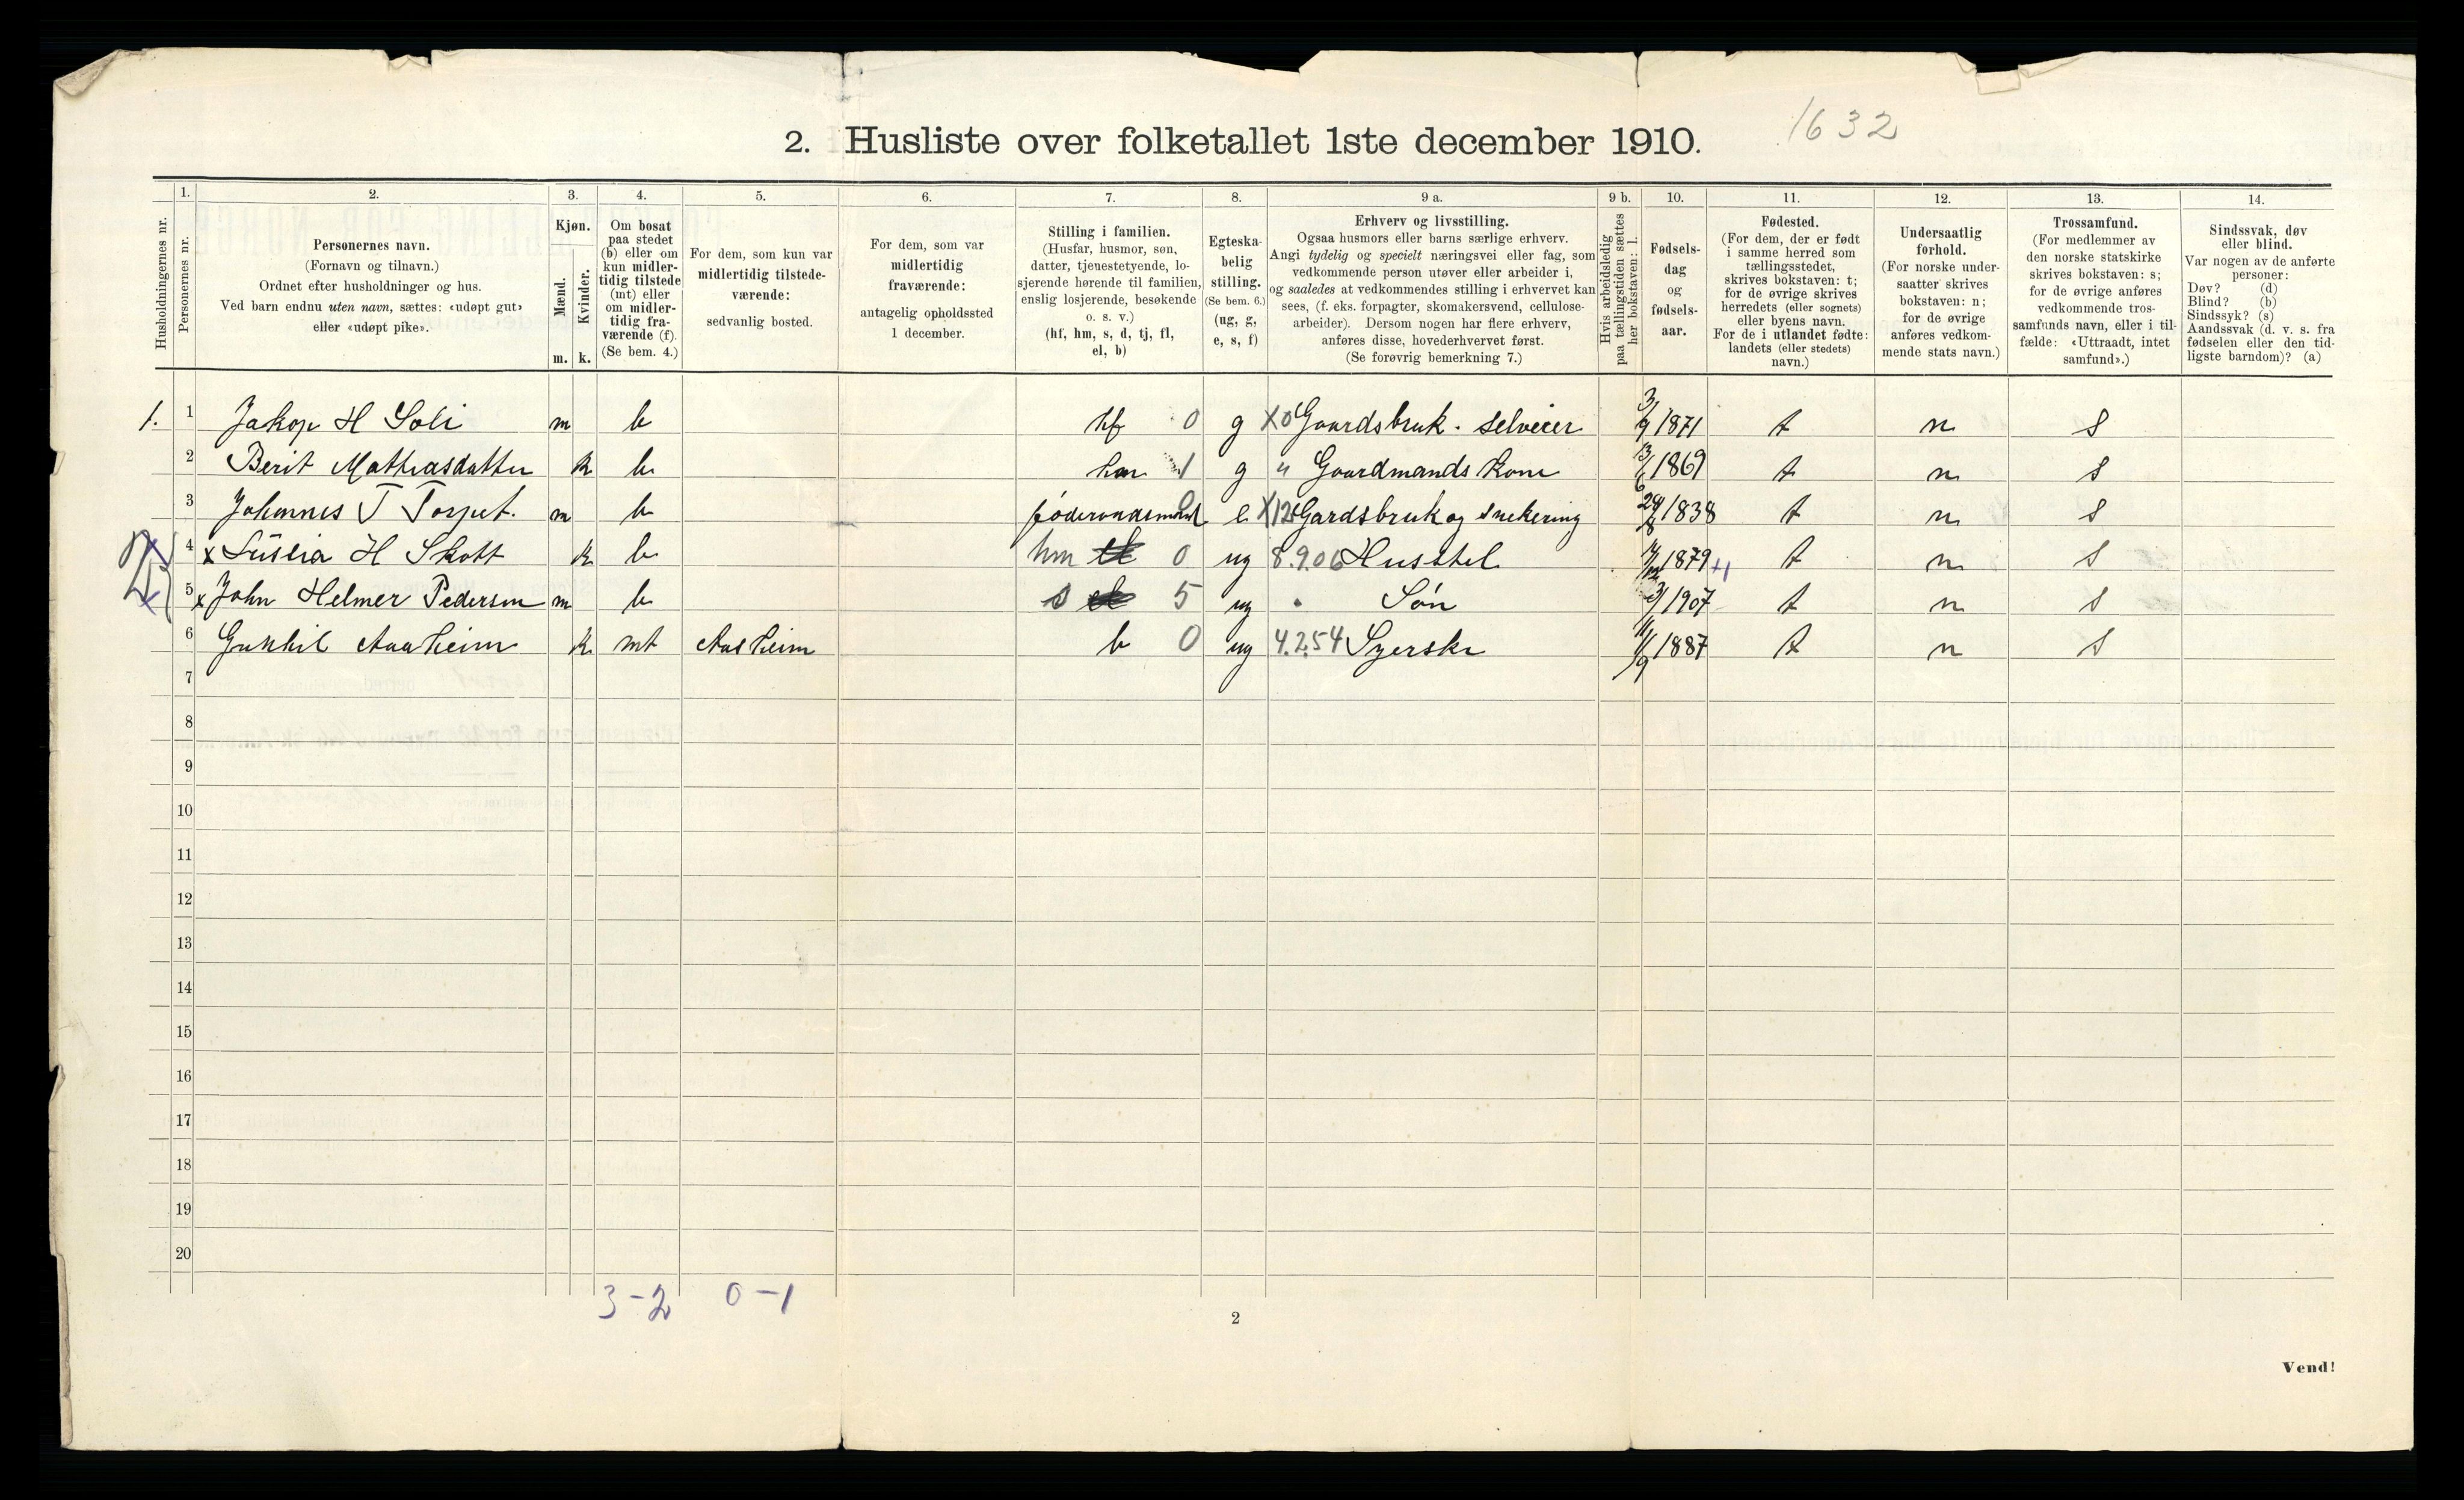 1632
2. Husliste over folketallet 1ste december 1910.
Husholdningernes nr.
1.
Personernes nr.
2.
Personernes navn.
(Fornavn og tilnavn.)
Ordnet efter husholdninger og hus.
Ved barn endnu uten navn, sættes: «udøpt gut»
eller «udøpt pike».
3.
Kjøn.
Mænd.
Kvinder.
m. k.
4.
Om bosat
paa stedet
(b) eller om
kun midler-
tidig tilstede
(mt) eller
om midler-
tidig fra-
værende (f).
(Se bem. 4.)
5.
For dem, som kun var
midlertidig tilstede-
værende:
sedvanlig bosted.
6.
For dem, som var
midlertidig
fraværende:
antagelig opholdssted
1 december.
7.
Stilling i familien.
(Husfar, husmor, søn,
datter, tjenestetyende, lo-
sjerende hørende til familien,
enslig losjerende, besøkende
o. s. v.)
(hf, hm, s, d, tj, fl,
el, b)
8.
Egteska-
belig
stilling.
(Se bem. 6.)
(ug, g,
e, s, f)
9 a.
Erhverv og livsstilling.
Ogsaa husmors eller barns særlige erhverv.
Angi tydelig og specielt næringsvei eller fag, som
vedkommende person utøver eller arbeider i,
og saaledes at vedkommendes stilling i erhvervet kan
sees, (f. eks. forpagter, skomakersvend, cellulose-
arbeider). Dersom nogen har flere erhverv,
anføres disse, hovederhvervet først.
(Se forøvrig bemerkning 7.)
9 b.
Hvis arbeidsledig
paa tællingstiden sættes
her bokstaven: l.
10.
Fødsels-
dag
og
fødsels-
aar.
11.
Fødested.
(For dem, der er født
i samme herred som
tællingsstedet,
skrives bokstaven: t;
for de øvrige skrives
herredets (eller sognets)
eller byens navn.
For de i utlandet fødte:
landets (eller stedets)
navn.)
12.
Undersaatlig
forhold.
(For norske under-
saatter skrives
bokstaven: n;
for de øvrige
anføres vedkom-
mende stats navn.)
13.
Trossamfund.
(For medlemmer av
den norske statskirke
skrives bokstaven: s;
for de øvrige anføres
vedkommende tros-
samfunds navn, eller i til-
fælde: «Uttraadt, intet
samfund».)
14.
Sindssvak, døv
eller blind.
Var nogen av de anførte
personer:
Døv? (d)
Blind? (b)
Sindssyk? (s)
Aandssvak (d. v. s. fra
fødselen eller den tid-
ligste barndom)? (a)
1. 1 Jakop H Soli m b hf 0 g X0 Gaardsbruk. selveier 3/9 1871 t n s
2 Berit Mathiasdatter k b hm 1 g " Gaardmands kone 13/6 1869 t n s
3 Johannes T Torpet. m b føderaadsmand 0 e X12 Gardsbruk og snekering 24/8 1838 t n s
4 x H Skott k b hm 0 ug 8.9.06 Husstel 1879 +1 t n s
5 x John Helmer Pedersen m b s 5 ug " Søn 1907 t n s
6 Gunhil Aaaheim k mt Aasheim b 0 ug 4.2.54 Syerske 11/9 1887 t n s
7
8
9
10
11
12
13
14
15
16
17
18
19
20
3-2 0-1
2
Vend!